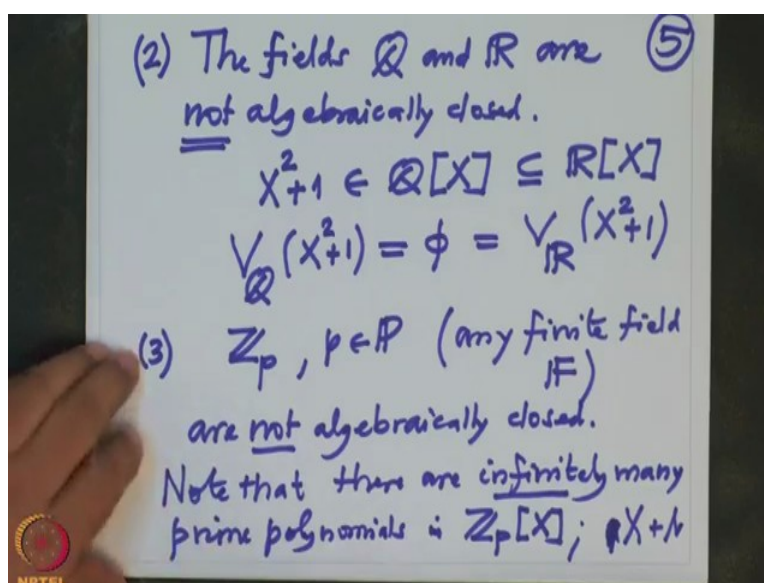 (2) The fields ℚ and ℝ are ⑤
not algebraically closed.
X²+1 ∈ ℚ[X] ⊆ ℝ[X]
V_ℚ(X²+1) = ϕ = V_ℝ(X²+1)
(3) ℤ_p, p∈ℙ (any finite field
𝔽)
are not algebraically closed.
Note that there are infinitely many
prime polynomials in ℤ_p[X];
NPTEL